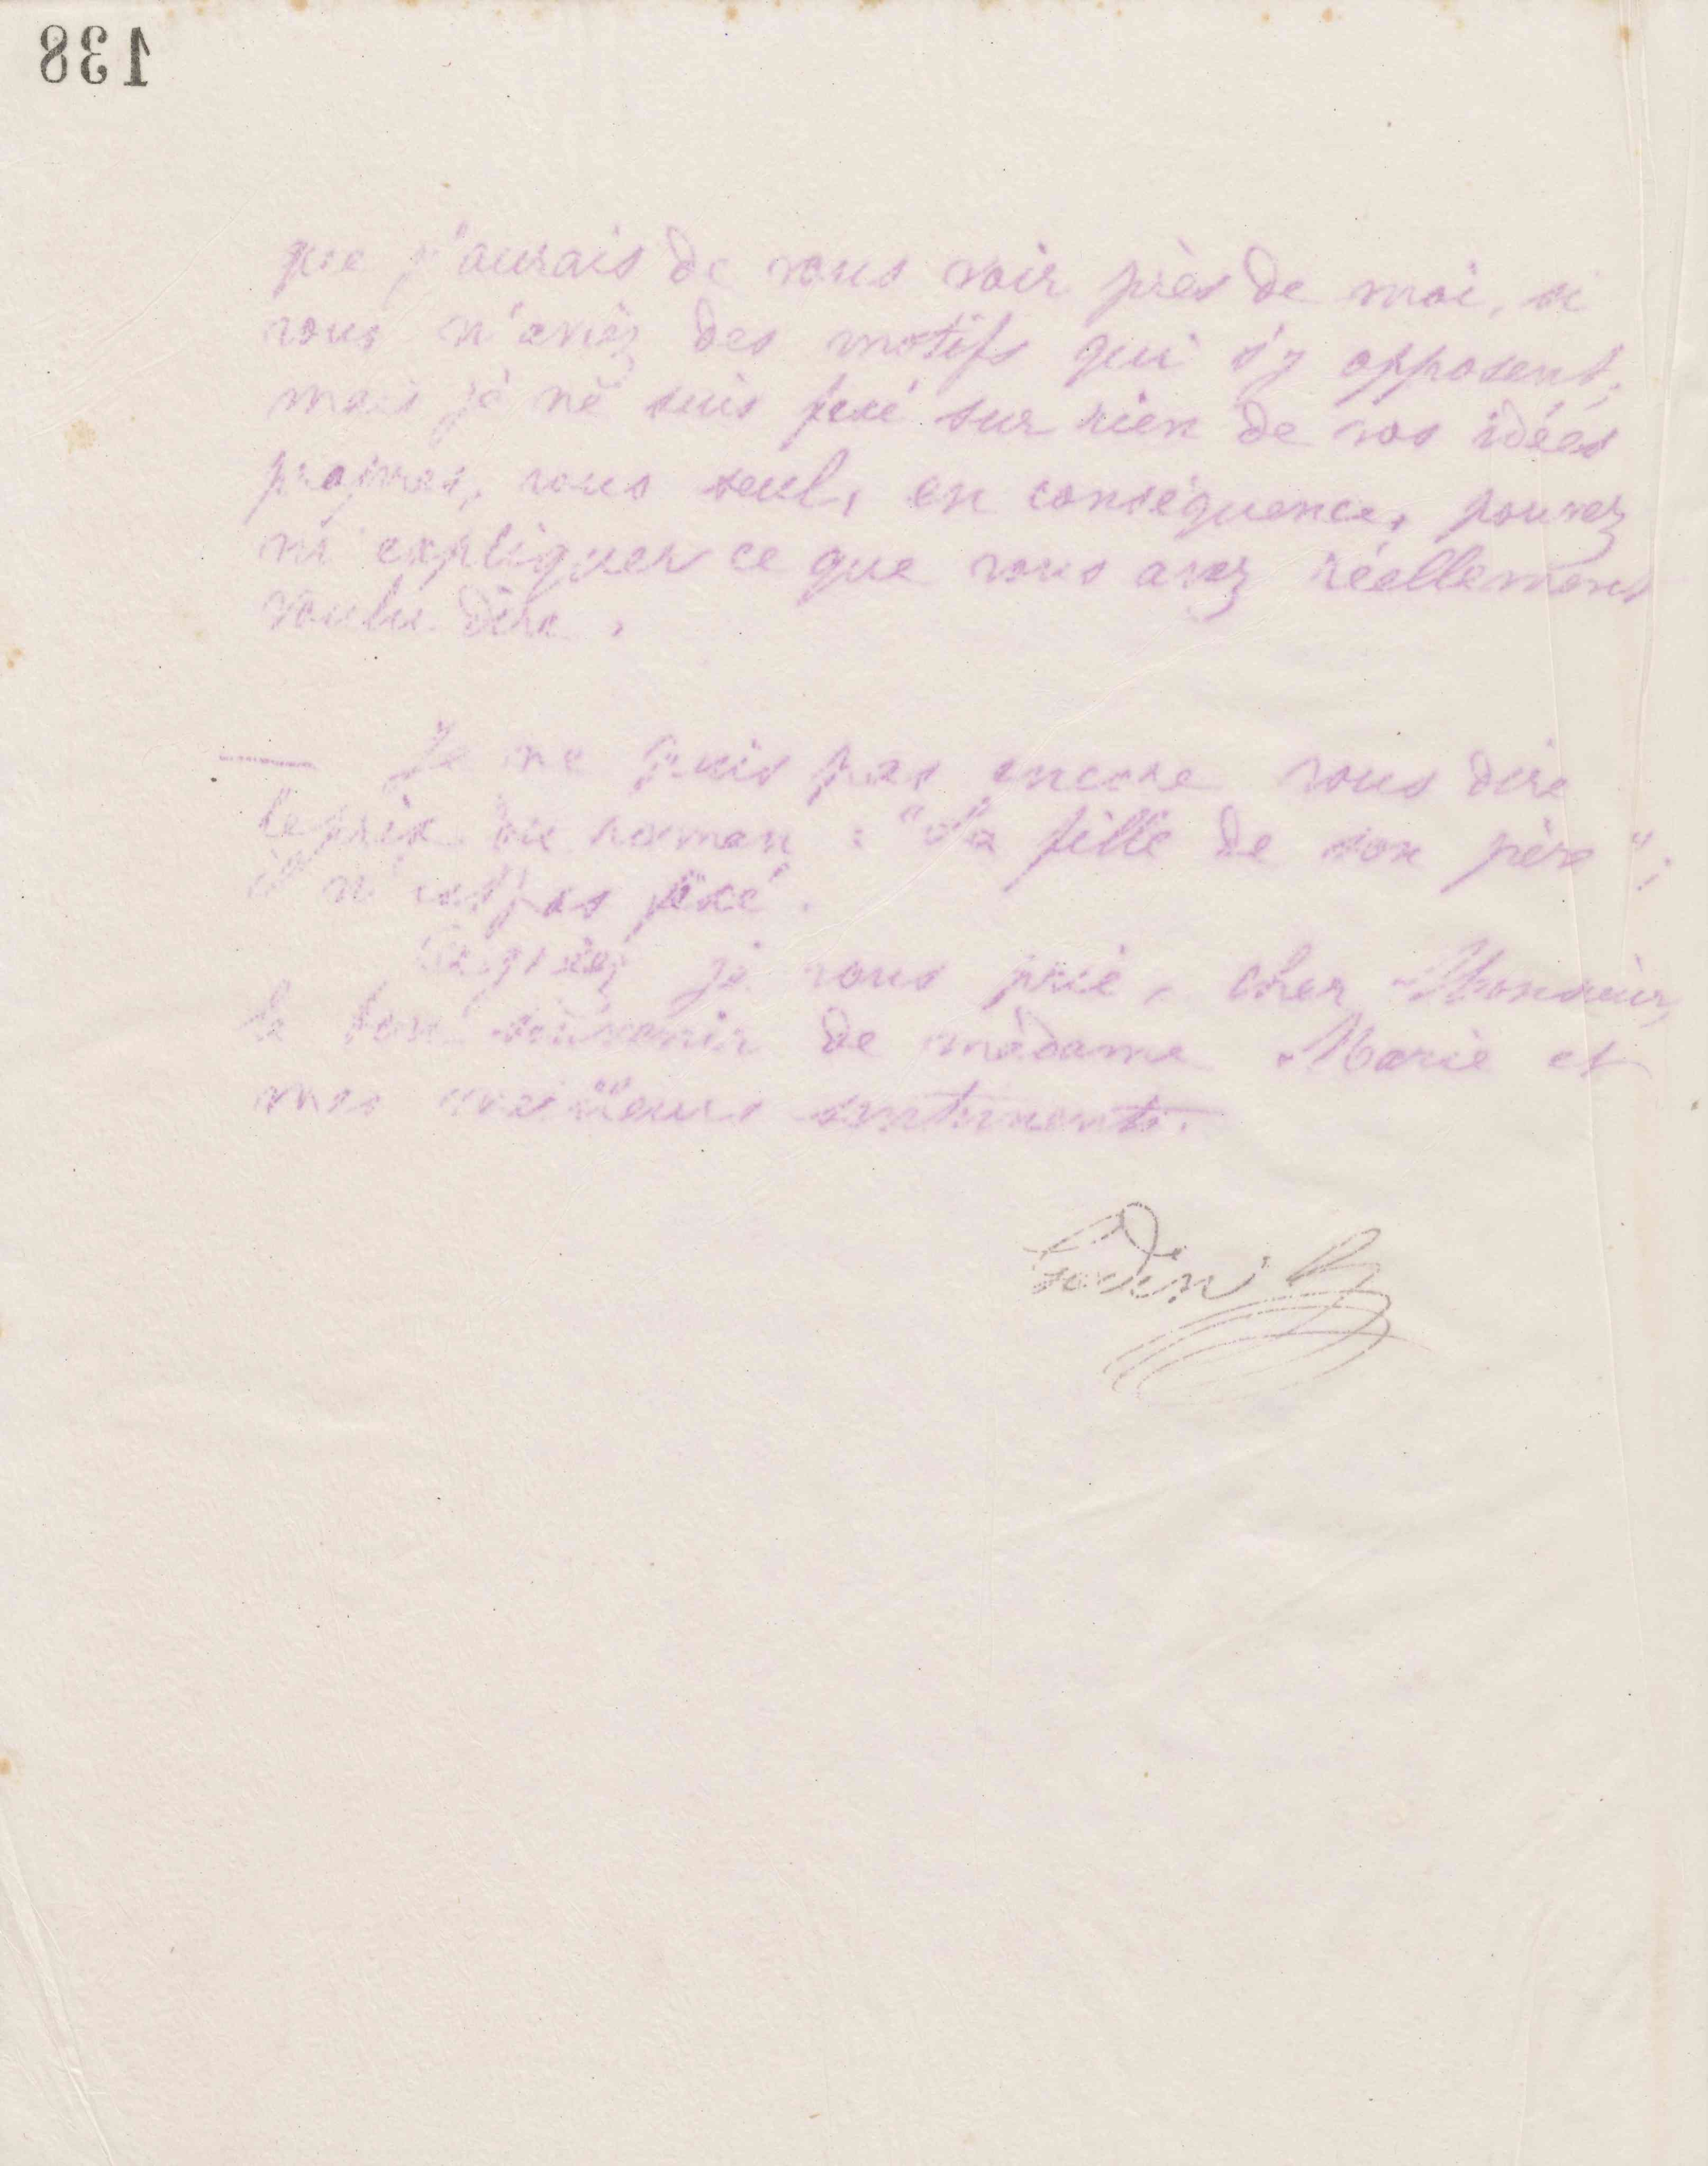 138
que j'aurais de vous voir près de moi, si
vous n'aviez des motifs qui s'y opposent;
mais je ne suis fixé sur rien de vos idées
propres, vous seul, en conséquence, pouvez
m'expliquer ce que vous avez réellement
voulu dire.
Je ne puis pas encore vous dire
le prix du roman : "La fille de son père";
il n'est pas fixé.
Agréez je vous prie, cher Monsieur,
le bon souvenir de madame Marie et
mes meilleurs sentiments.
Godin